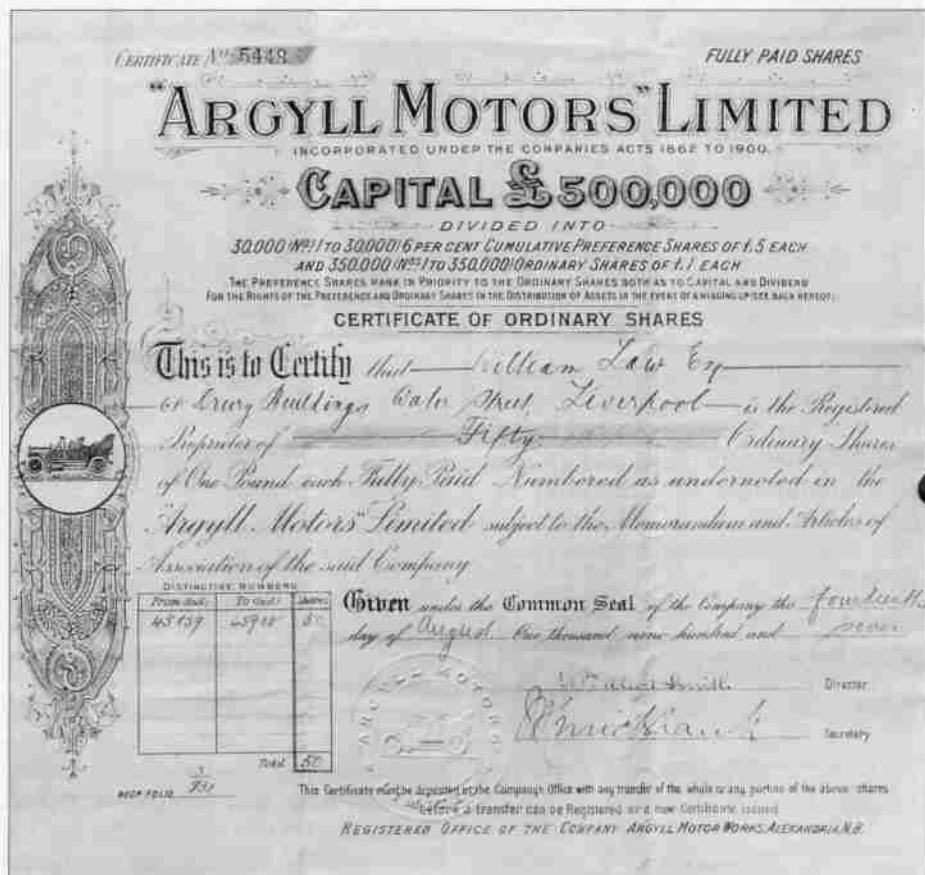 CERTIFICATE No. 5448
FULLY PAID SHARES
"ARGYLL MOTORS" LIMITED
INCORPORATED UNDER THE COMPANIES ACTS 1862 TO 1900.
CAPITAL £500,000
DIVIDED INTO
30,000 (Nos 1 TO 30,000) 6 PER CENT CUMULATIVE PREFERENCE SHARES OF £5 EACH
AND 350,000 (Nos 1 TO 350,000) ORDINARY SHARES OF £1 EACH
THE PREFERENCE SHARES RANK IN PRIORITY TO THE ORDINARY SHARES BOTH AS TO CAPITAL AND DIVIDEND
FOR THE RIGHTS OF THE PREFERENCE AND ORDINARY SHARES IN THE DISTRIBUTION OF ASSETS IN THE EVENT OF A WINDING UP SEE BACK HEREOF.
CERTIFICATE OF ORDINARY SHARES
This is to Certify that William Law Esq
Drury Buildings Water Street, Liverpool is the Registered
Proprietor of Fifty Ordinary Shares
of One Pound each Fully Paid Numbered as undernoted in the
"Argyll Motors" Limited subject to the Memorandum and Articles of
Association of the said Company
DISTINCTIVE NUMBERS
From incl: To incl: Shares
50
Total 50
Given under the Common Seal of the Company this fourteenth
day of August One thousand nine hundred and seven
ARGYLL MOTORS
Director
Secretary
REGR FOLIO
This Certificate must be deposited at the Company's Office with any transfer of the whole or any portion of the above shares
before a transfer can be Registered or a new Certificate issued
REGISTERED OFFICE OF THE COMPANY ARGYLL MOTOR WORKS, ALEXANDRIA, N.B.